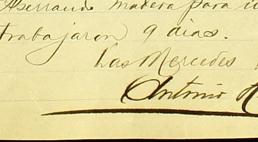 Aserrando madera para
trabajaron 9 dias.
Las Mercedes
Antonio